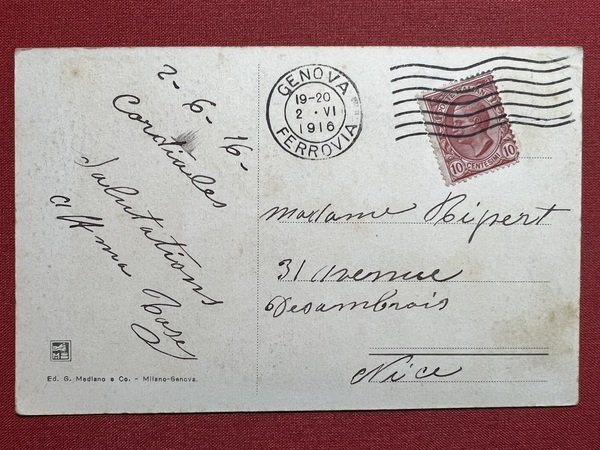 2-6-16-
Cordiales
Salutations
aff.ma Rosey
Ed. G. Mediano e Co. - Milano-Genova.
GENOVA
19-20
2 · VI
1916
FERROVIA
10 CENTESIMI 10
Madame Ripert
31 Avenue
Desambrois
Nice